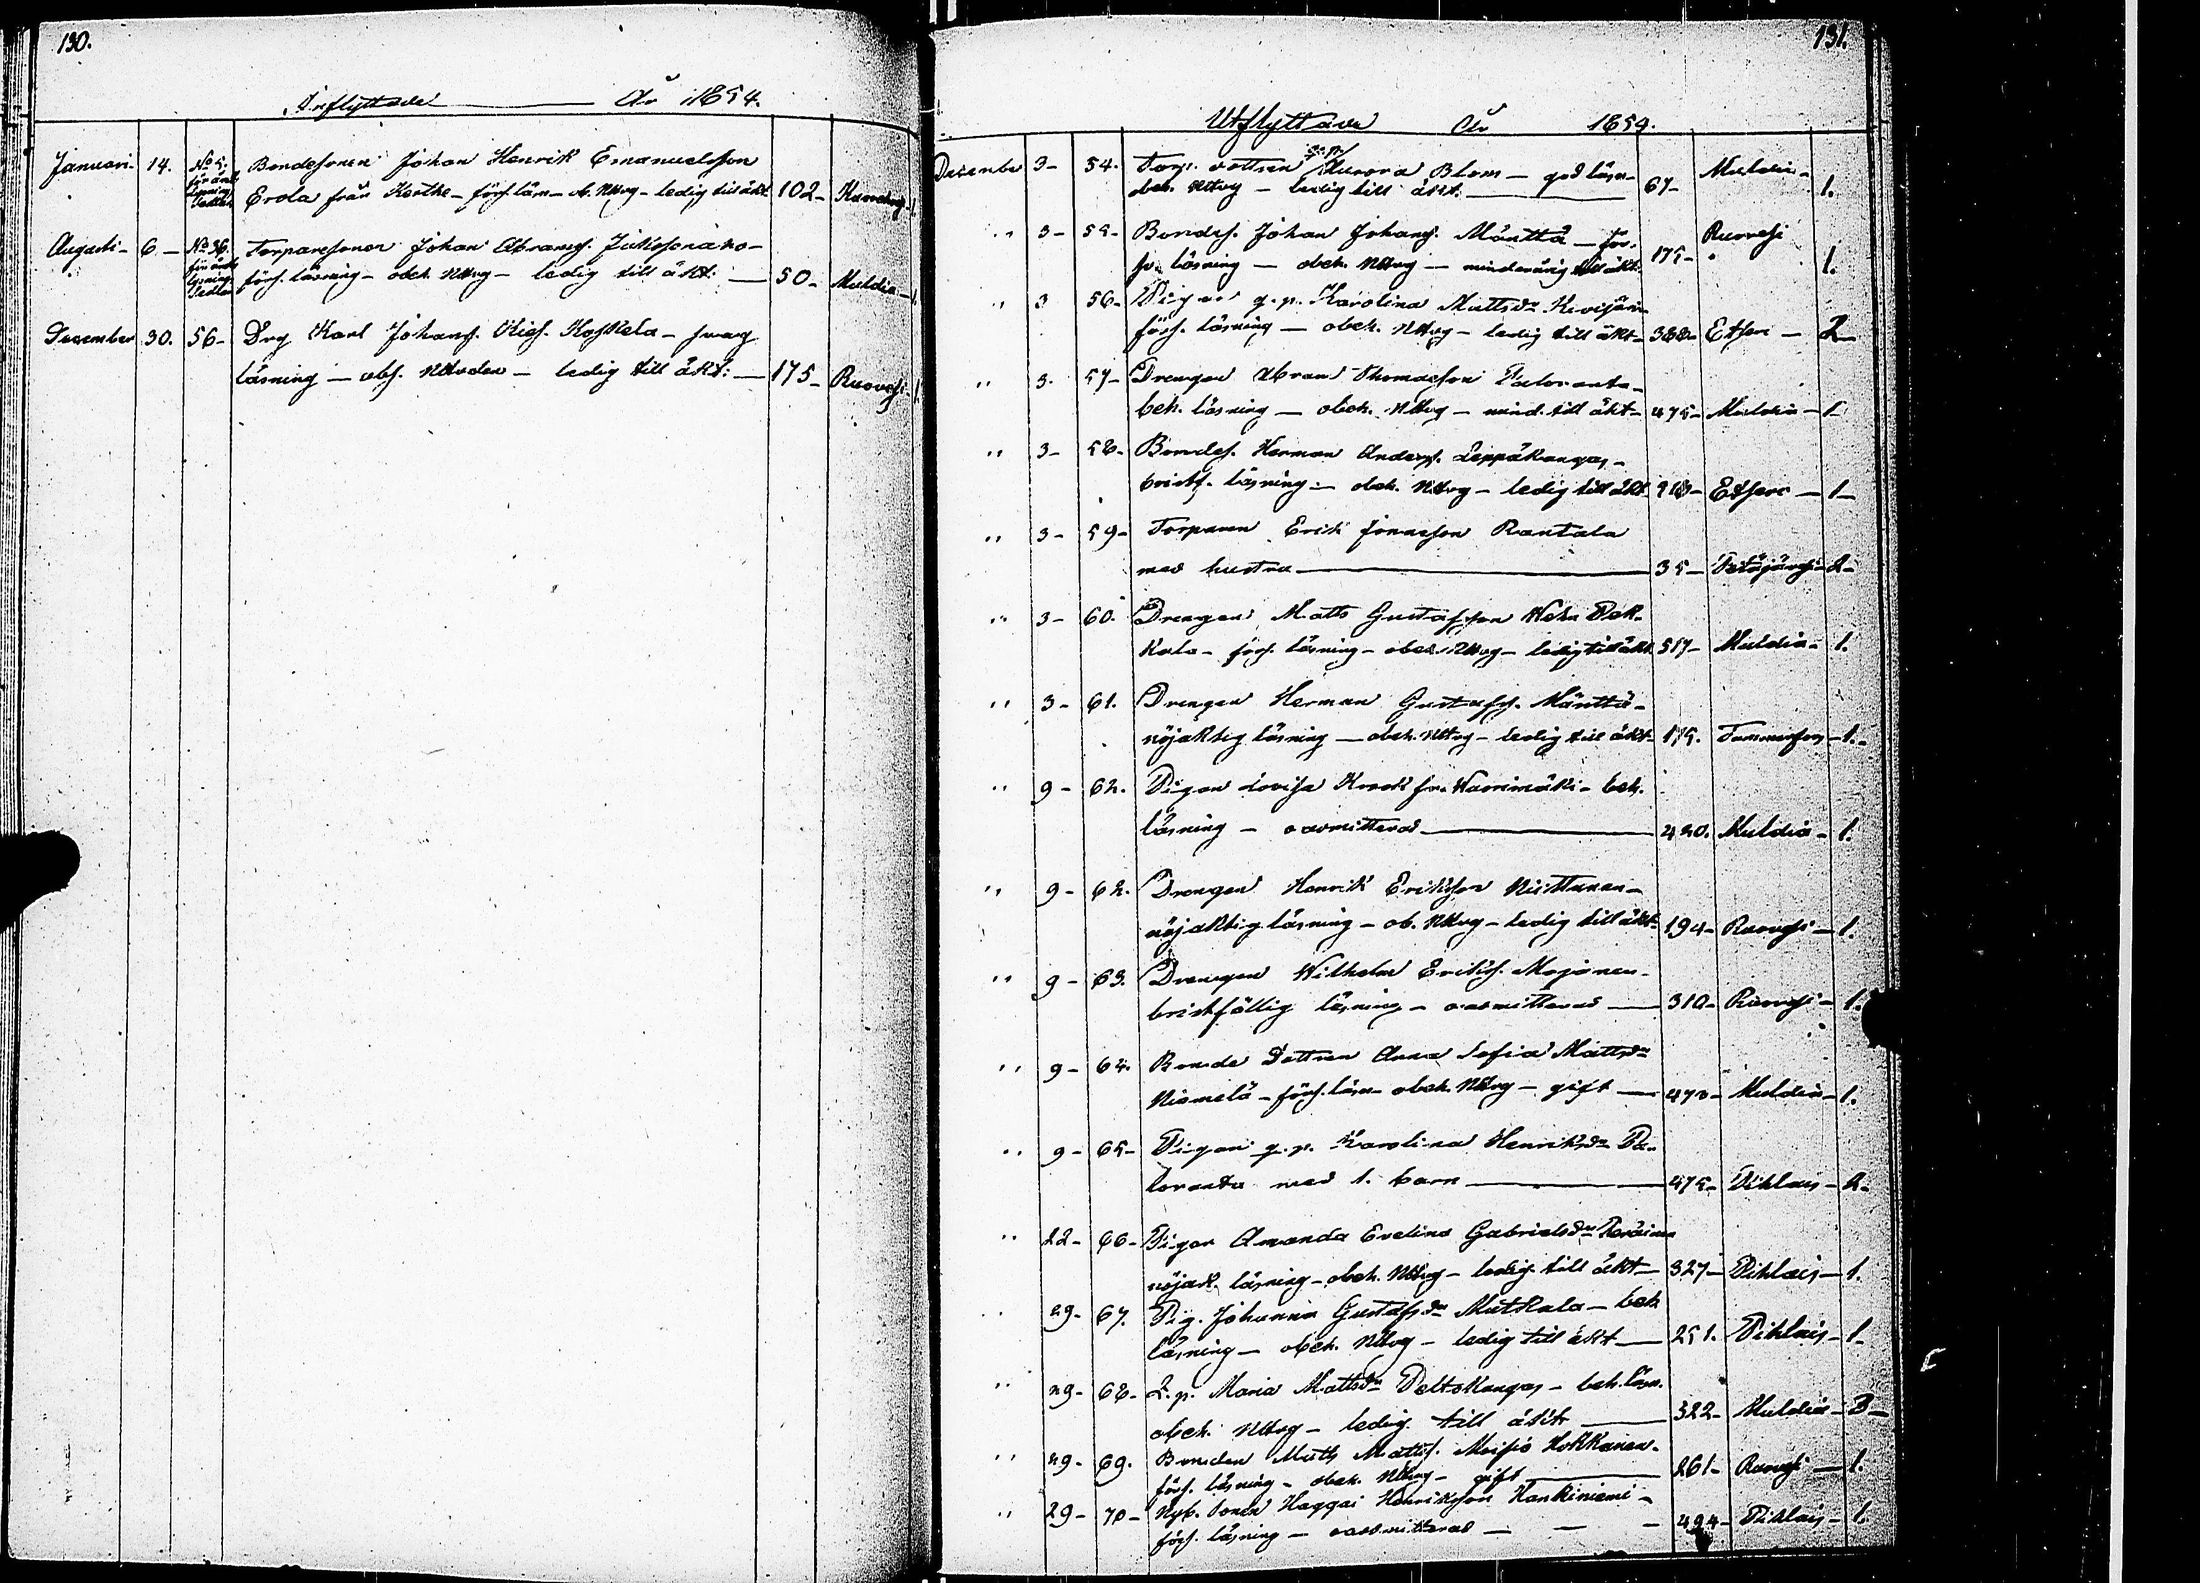 130.
Inflyttade År 1854.
Januari 14. No 5. för änd. Bondesonen Johan Henrik Emanuelsson
Erola från Keihe - förs. läsn - ob. Nttvg - ledig till äkt. 102 -
Augusti - 6 - No 36. för änd. Torparesonen Johan Abrams.
förs. läsning - obeh. Nttvg - ledig till äkt. - 50 - Muldia - 1
December 30. 56 - Drg Karl Johans. Koskela - swag
läsning - obs. Nttvden - ledig till äkt: - 175 - Ruovesi - 1
131.
Utflyttade År 1854.
December 3 - 54. Torp. dottren Aurora Blom - god läsn -
obeh. Nttvg - ledig till äkt. 67 - Muldia - 1.
" 3 - 55 - Bondes. Johan Johans. Mänttä - för-
sv. läsning - obeh. Nttvg - minderårig till äkt. 175 - Ruovesi 1.
" 3 56 - Pigan q. p. Karolina Mattsdr
förs. läsning - obeh. Nttvg - ledig till äkt - 388 - Etseri - 2 -
" 3. 57 - Drengen Abram Thomasson Paloranta -
beh. läsning - obeh. Nttvg - mind. till äkt - 475 - Muldia - 1
" 3 - 58 - Bondes. Herman Anders. Leppäkangas -
bristf. läsning - obeh. Nttvg - ledig till äkt Etseri - 1 -
" 3 - 59 - Torparen Erik Jonasson Rantala
med hustru 35 - Petäjävesi - 2 -
" 3 - 60. Drengen Matts Gustafsson Weha Pek-
kala - förs. läsning - obeh. Nttvg - ledig till äkt 517 - Muldia - 1.
" 3 - 61. Drengen Herman Gustafs. Mänttä -
nöjaktig läsning - obeh. Nttvg - ledig till äkt - 175. Tammerfors - 1. -
" 9 - 62. Pigan Lovisa Krook fr. Warrimäki - beh.
läsning - oadmitterad 420. Muldia - 1.
" 9 - 62. Drengen Henrik Eriksson Niittunen -
nöjaktig läsning - ob. Nttvg - ledig till äkt - 194 - Ruovesi - 1.
" 9 - 63. Drengen Wilhelm Eriks. Mojanen -
bristfällig läsning - oadmitterad 310 - Ruovesi - 1.
" 9 - 64. Bonde Dottren Anna Sofia Mattsdr
Niemelä - förs. läsn - obeh. Nttvg - gift 473 - Muldia - 1.
" 9 - 65 - Pigan q. p. Karolina Henriksdr Pa-
loranta med 1. barn 475 - Pihlais - 2 -
" 22 - 66 - Pigan Amanda Evelina Gabrielsdr
nöjak. läsning - obeh. Nttvg - ledig till äkt - 327 - Pihlais - 1.
" 29 - 67. Pig. Johanna Gustafsdr Mutkala - beh
läsning - obeh. Nttvg - ledig till äkt 251. Pihlais - 1
" 29 - 68 - Q. p. Maria Mattsdr Peltokangas - beh. läsn.
obeh. Nttvg - ledig till äkt 322 - Muldia - 3 -
" 29 - 69. Bonden Matts Matts. Moisio Hokkanen -
förs. läsning - obeh. Nttvg - gift 261 - Ruovesi - 1.
" 29 - 70 - Nyb. sonen Haggai Henriksson Hankiniemi -
förs. läsning - oadmitterad - - - 494 - Pihlais - 1.